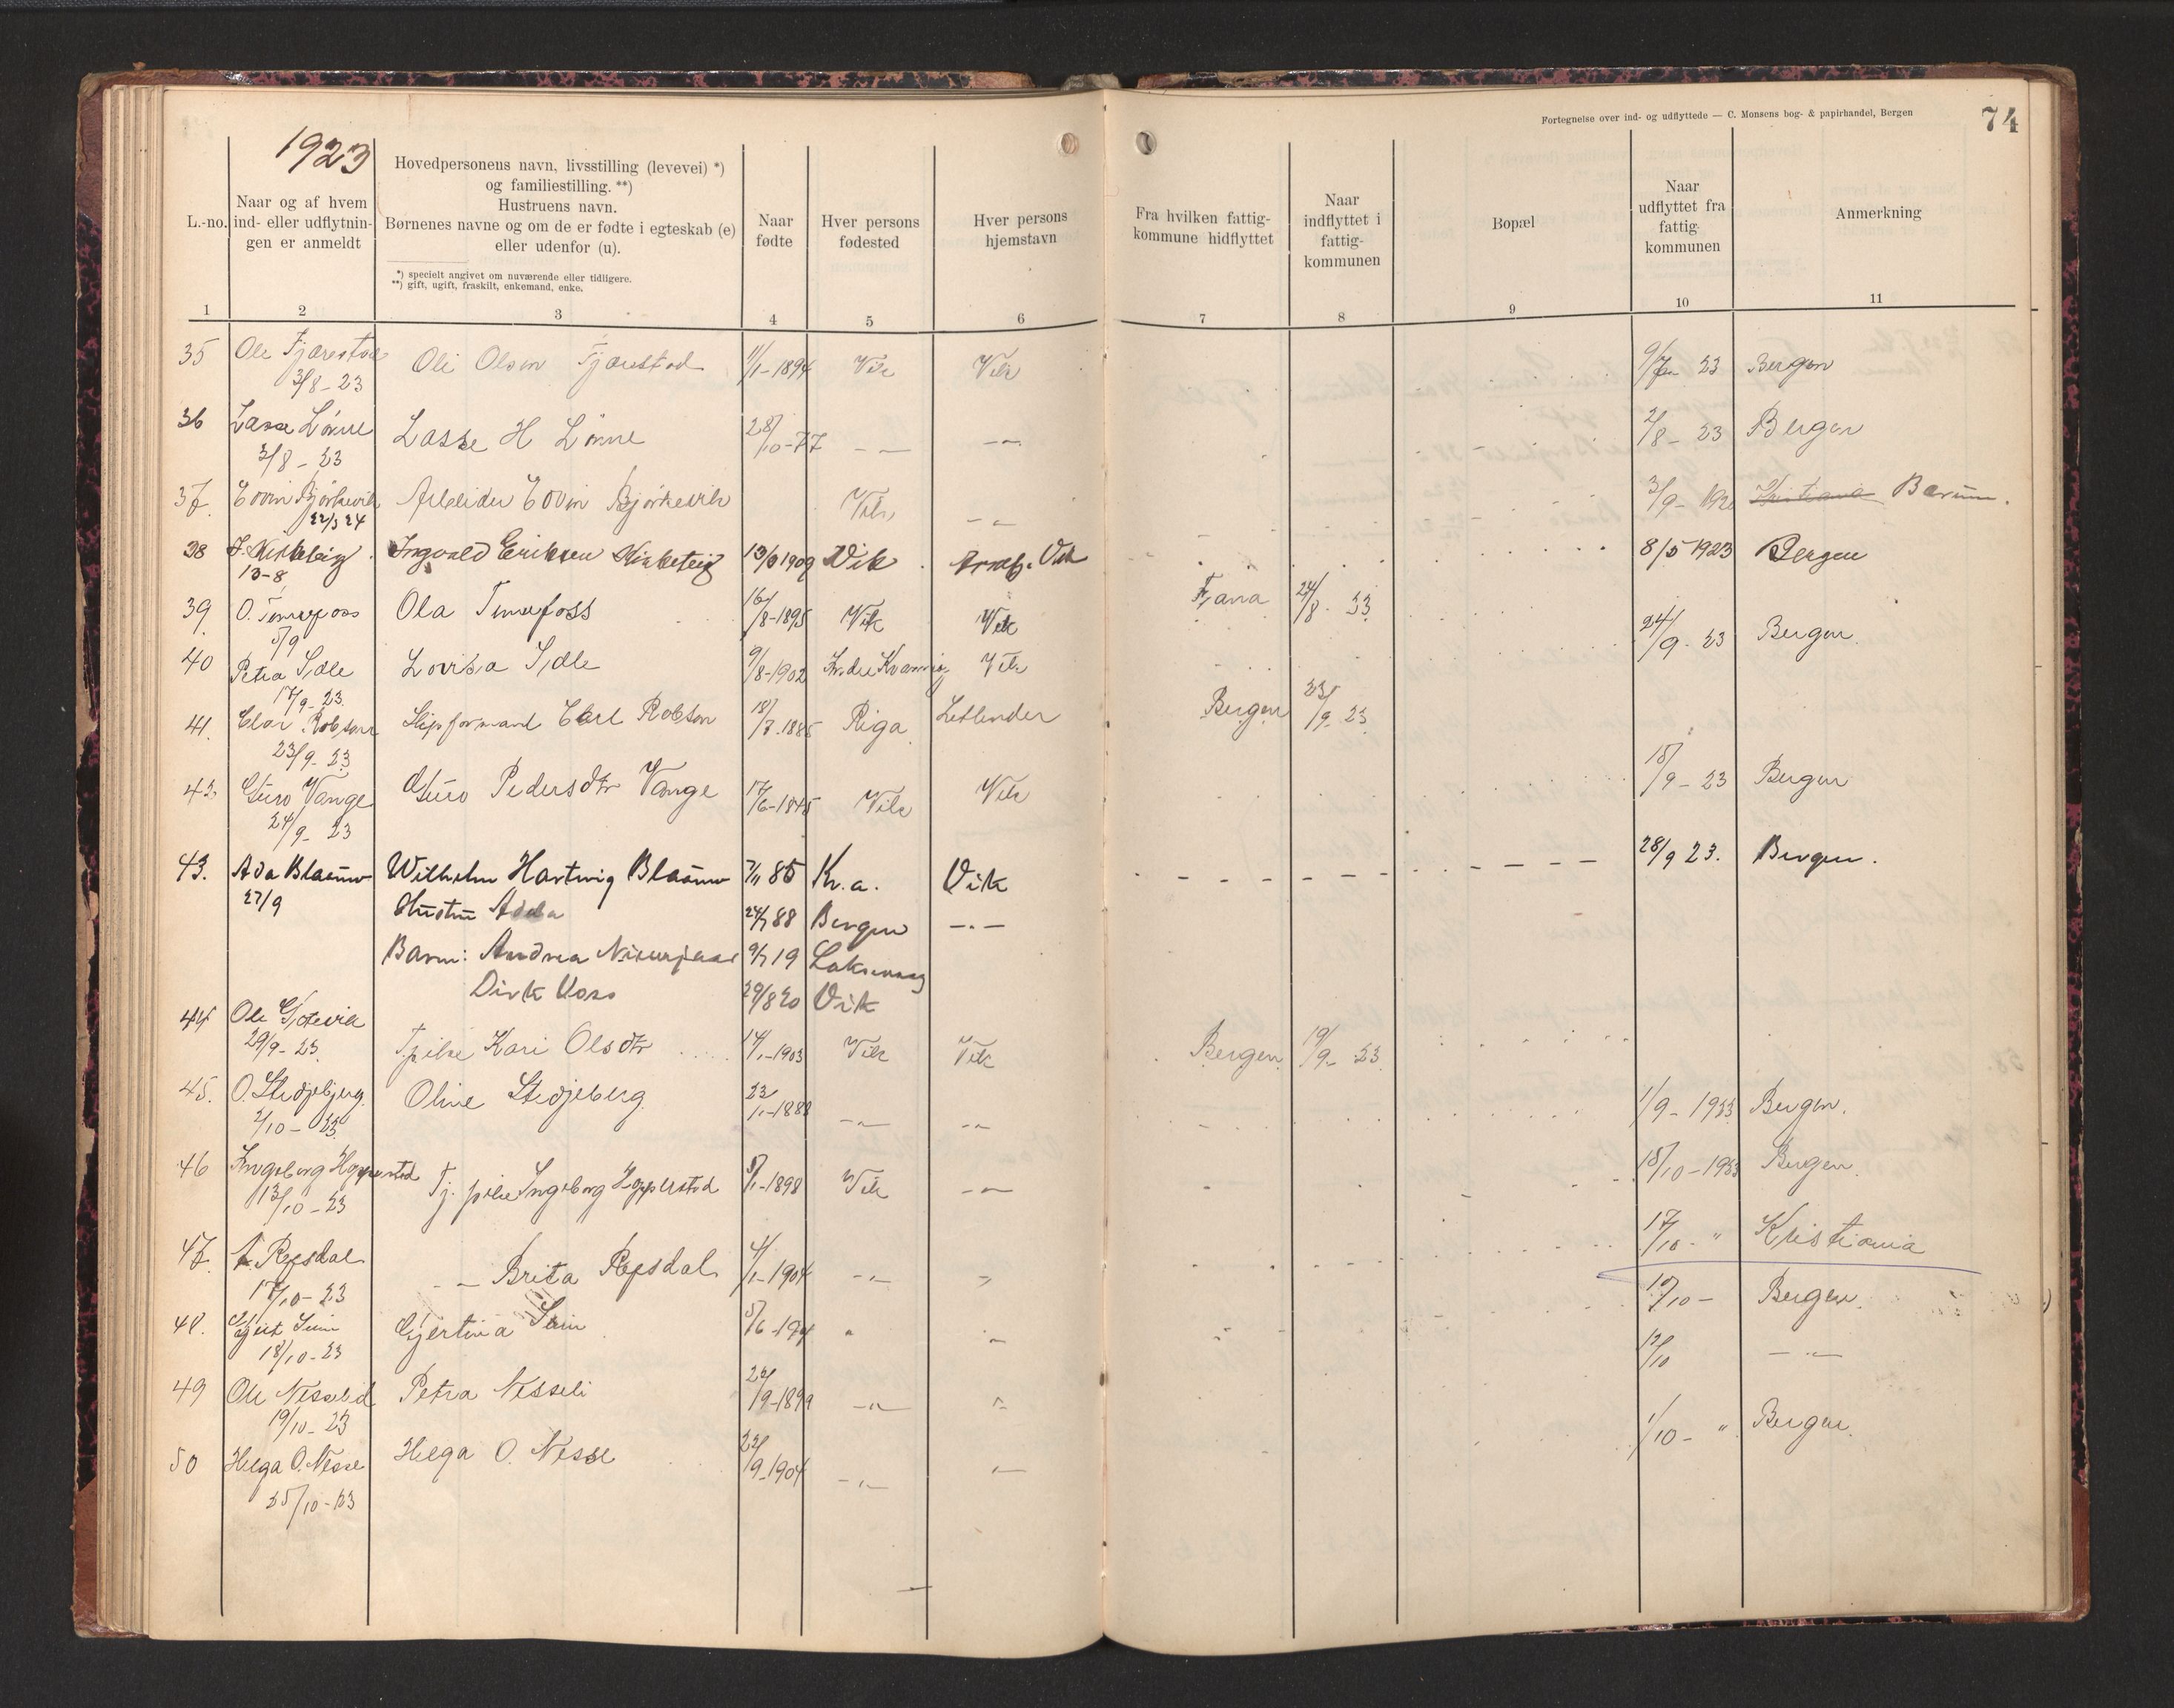 Fortegnelse over ind- og udflyttede — C. Monsens bog- & papirhandel, Bergen
74
1923
L.-no.
Naar og af hvem
ind- eller udflytnin-
gen er anmeldt
Hovedpersonens navn, livsstilling (levevei) *)
og familiestilling. **)
Hustruens navn.
Børnenes navne og om de er fødte i egteskab (e)
eller udenfor (u).
*) specielt angivet om nuværende eller tidligere.
**) gift, ugift, fraskilt, enkemand, enke.
Naar
fødte
Hver persons
fødested
Hver persons
hjemstavn
Fra hvilken fattig-
kommune hidflyttet
Naar
indflyttet i
fattig-
kommunen
Bopæl
Naar
udflyttet fra
fattig-
kommunen
Anmerkning
1 2 3 4 5 6 7 8 9 10 11
35 Ole Fjærestad Ole Olsen Fjærestad 1/1-1894 Vik Vik 9/7 23 Bergen
3/8-23
36 Lasse Lønne Lasse H Lønne 28/10-77 - - -"- 2/8-23 Bergen
3/8-23
37 Edvin Bjørkevik Arbeider Edvin Bjørkevik Vik -"- 3/9- Kristiania Bærum.
22/3 24
38 Ingvald Eriksen 13/9 1909 Vik Vik 8/5 1923 Bergen
13-8
39 O. Tennefoss Ola Tennefoss 16/8-1895 Vik Vik Fana 24/8-23
5/9
40 Petra Sjdle Lovisa Sjdle 9/8-1902 Vik 24/9-23 Bergen
17/9-23
41. Robson Skipsformand Carl Robson 18/7-1885 Riga Letlender Bergen 23/9-23
23/9-23
42 Guro Vange Guro Pedersdtr Vange 17/6-1845 Vik Vik 18/9-23 Bergen
24/9-23
43. Ada Blaauw Wilhelm Hartwig Blaauw 7/11 85 Kr.a. Vik 28/9 23. Bergen.
27/9 Hustru Adda 24/7 88 Bergen -"-
Barn: Andrea 9/7 19 Laksevaag
Dirk Voss 29/8 20 Vik
44 Ole
29/9-23 Tj.pike Kari Olsdtr 14/1-1903 Vik Vik Bergen 19/9-23
45. O. Stedjeberg Oline Stedjeberg 23/1-1888 -"- -"- 1/9-1923 Bergen.
2/10-23
46 Ingeborg Hopperstad Tj. pike Ingeborg Hopperstad 5/1-1898 Vik -"- 18/10-1923 Bergen
13/10-23
47 A. Refsdal - - Brita Refsdal 4/1-1904 -"- " 17/10-" Kristiania
17/10-23
48. Sein Gjertina Sein 5/6-194 " " 17/10- Bergen.
18/10-23
49 Ole Nesseli Petra Nesseli 22/9-1899 -"- " 12/10 -"-
19/10-23
50 Helga O. Nesse Helga O. Nesse 22/9-1904 -"- " 1/10-" Bergen.
25/10-23